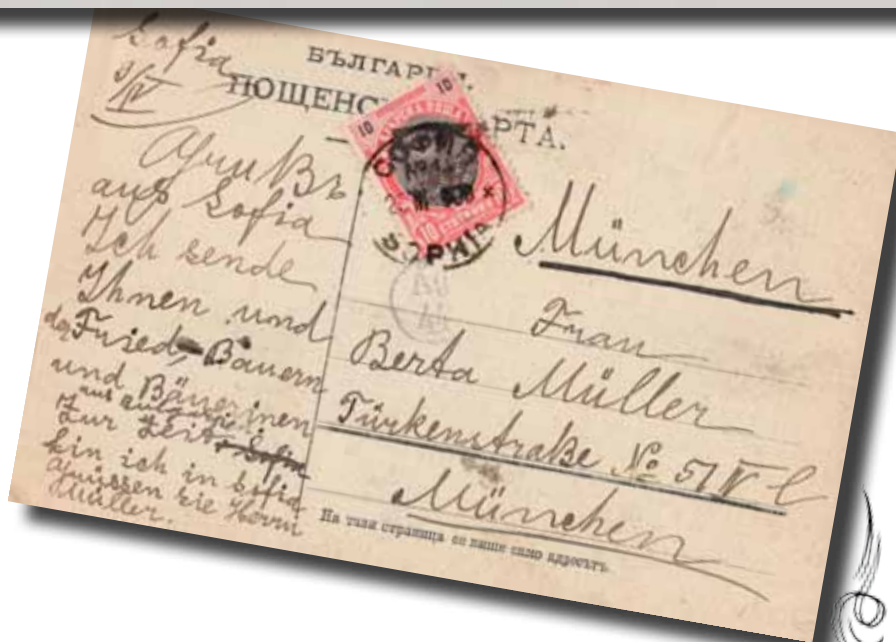 БЪЛГАРИЯ.
ПОЩЕНС РТА.
10
10
10
СОФИЯ
Sofia
3/IV
Gruß
aus Sofia
Ich sende
Ihnen und
der Fried, Bauern
und Bäuerinen
aus
Zur Zeit Sofia
bin ich in Sofia
Grüssen sie Herrn
Müller.
München
Frau
Berta Müller
Türkenstraße № 51 IV l
München
На тази страница се пише само адресътъ.